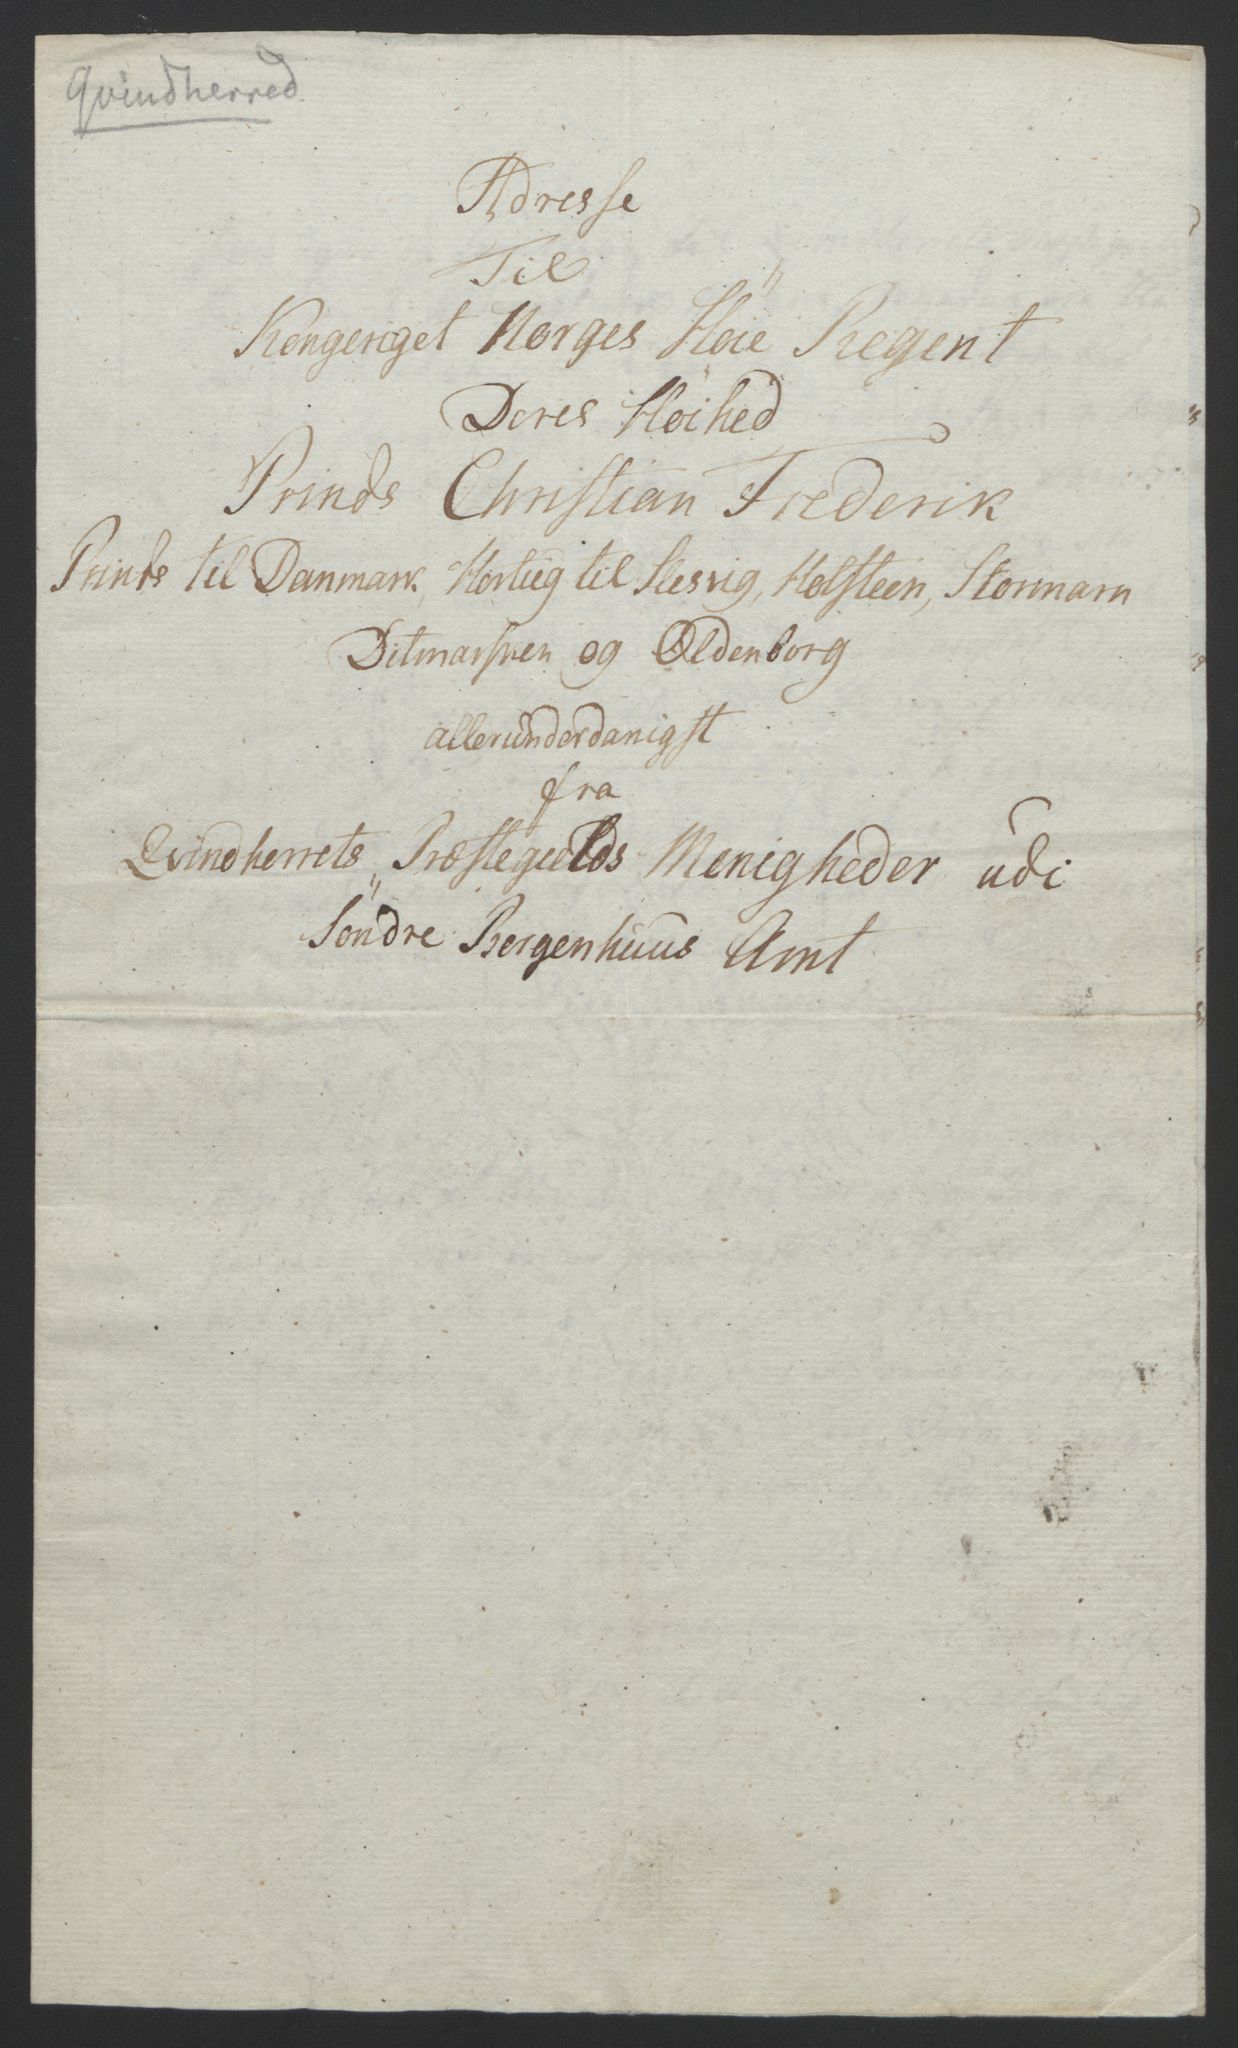 Qvindherred
Adresse
Til
Kongeriget Norges Höie Regent
Deres Höihed
Prinds Christian Frederik
Prinds til Danmark, Hertug til Slesvig, Holsteen, Stormarn
Ditmarsken og Oldenborg
allerunderdanigst
fra
Qvindherrets Præstegields Menigheder udi
Söndre Bergenhuus Amt